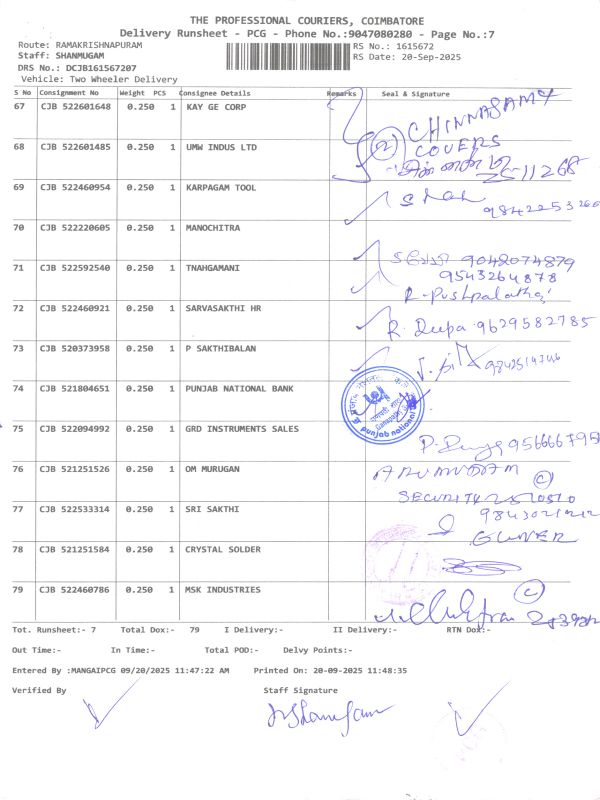 THE PROFESSIONAL COURIERS, COIMBATORE
Delivery Runsheet - PCG - Phone No.:9047080280 - Page No.:7
Route: RAMAKRISHNAPURAM
Staff: SHANMUGAM
DRS No.: DCJB161567207
Vehicle: Two Wheeler Delivery
RS No.: 1615672
RS Date: 20-Sep-2025
S No Consignment No Weight PCS Consignee Details Remarks Seal & Signature
67 CJB 522601648 0.250 1 KAY GE CORP
CHINNASAMY
COVERS
68 CJB 522601485 0.250 1 UMW INDUS LTD
2511268
69 CJB 522460954 0.250 1 KARPAGAM TOOL
70 CJB 522220605 0.250 1 MANOCHITRA
9042074879
71 CJB 522592540 0.250 1 TNAHGAMANI
9543264878
R. Pushpalatha
72 CJB 522460921 0.250 1 SARVASAKTHI HR
R. Deepa 9629582785
73 CJB 520373958 0.250 1 P SAKTHIBALAN
74 CJB 521804651 0.250 1 PUNJAB NATIONAL BANK
punjab national
75 CJB 522094992 0.250 1 GRD INSTRUMENTS SALES
76 CJB 521251526 0.250 1 OM MURUGAN
SECURITY
77 CJB 522533314 0.250 1 SRI SAKTHI
78 CJB 521251584 0.250 1 CRYSTAL SOLDER
79 CJB 522460786 0.250 1 MSK INDUSTRIES
Tot. Runsheet:- 7 Total Dox:- 79 I Delivery:- II Delivery:- RTN Dox:-
Out Time:- In Time:- Total POD:- Delvy Points:-
Entered By :MANGAIPCG 09/20/2025 11:47:22 AM Printed On: 20-09-2025 11:48:35
Verified By Staff Signature